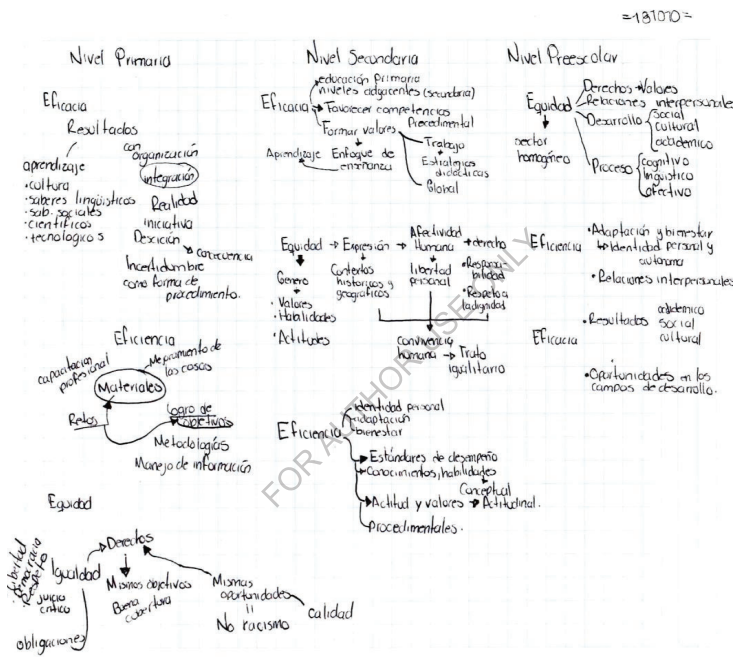 =131070=
Nivel Primaria
Eficacia
Resultados
aprendizaje
•cultura
•saberes lingüísticos
•sab. sociales
•científicos
•tecnologicos
con
organización
integración
Realidad
iniciativa
Desición
Consecuencia
Incertidumbre
como forma de
procedimiento.
Eficiencia
capacitación
profesional
Mejoramiento de
las cosas
Materiales
Retos
Logro de
objetivos
Metodologías
Manejo de información
Equidad
•Libertad
•Democracia
•Respeto
Igualdad
Juicio
crítico
obligaciones
Derechos
Mismos objetivos
Buena
cobertura
Mismas
oportunidades
No racismo
calidad
Nivel Secundaria
Eficacia
educación primaria
niveles adyacentes (secundaria)
Favorecer competencias
Formar valores
Procedimental
Aprendizaje
Enfoque de
enseñanza
Trabajo
Estrategias
didácticas
Global
Equidad
Expresión
Afectividad
Humana
derecho
Genero
•Valores
•Habilidades
•Actitudes
Contextos
históricos y
geográficos
libertad
personal
•Responsa-
bilidad
•Respeto a
la dignidad
convivencia
humana
Trato
igualitario
Eficiencia
identidad personal
adaptación
bienestar
Estándares de desempeño
Conocimientos, habilidades
Conceptual
Actitud y valores
Actitudinal.
procedimentales.
Nivel Preescolar
Equidad
sector
homogéneo
Derechos
Valores
Relaciones interpersonales
Desarrollo
social
cultural
académico
Proceso
cognitivo
lingüístico
afectivo
Eficiencia
•Adaptación y bienestar
Identidad personal y
autonoma
•Relaciones interpersonales
Eficacia
•Resultados
académico
social
cultural
•Oportunidades en los
campos de desarrollo.
FOR AUTHOR USE ONLY